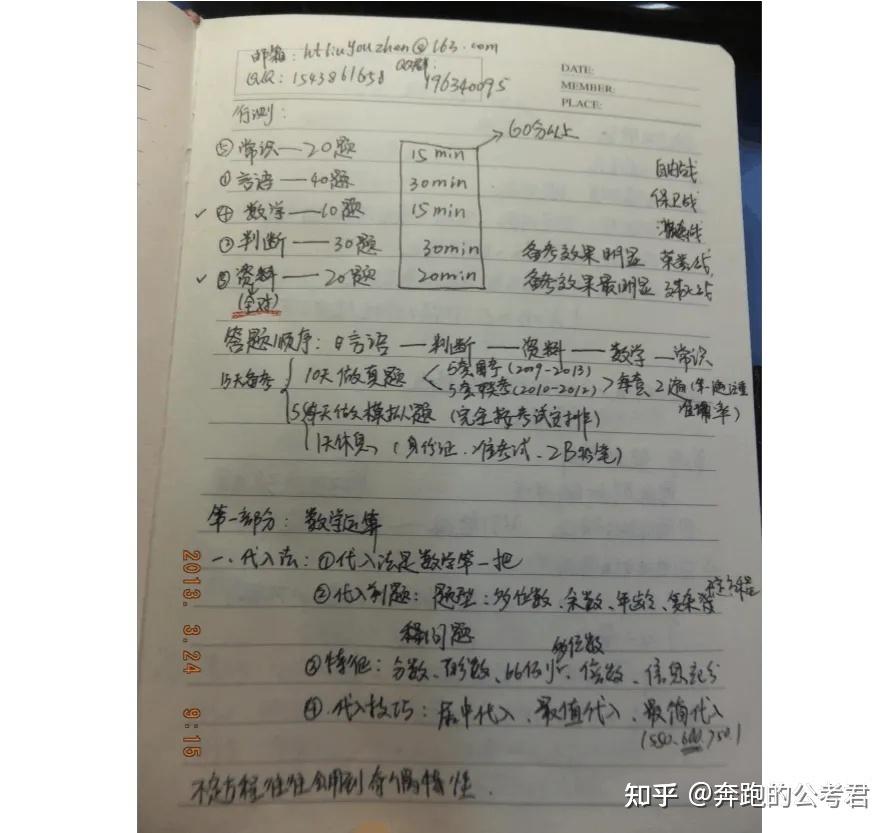 邮箱: htliuyouzhen@163.com
QQ: 1543861658 QQ群: 196340095
DATE:
MEMBER:
PLACE:
行测:
⑤ 常识——20题 15min 60分以上
① 言语——40题 30min
✓ ④ 数学——10题 15min
② 判断——30题 30min 备考效果明显
✓ ③ 资料——20题 20min 备考效果最明显
(全对)
自由战
保卫战
答题顺序: 言语——判断——资料——数学—常识
15天备考
10天做真题 5套国考(2009-2013)
5套联考(2010-2012) 每套2遍(第一遍注重准确率)
5天做模拟题(完全按考试安排作)
1天休息(身份证、准考试、2B铅笔)
第一部分: 数学运算
一、代入法: ①代入法是数学第一把
②代入剩题: 题型: 多位数、余数、年龄、不定方程
问题
多位数
③特征: 分数、比例、倍数、信息充分
④ 代入技巧: 居中代入、最值代入、最简代入
(550、600、750)
不定方程往往会用到奇偶特性.
2013. 3.24 9:15
知乎 @奔跑的公考君